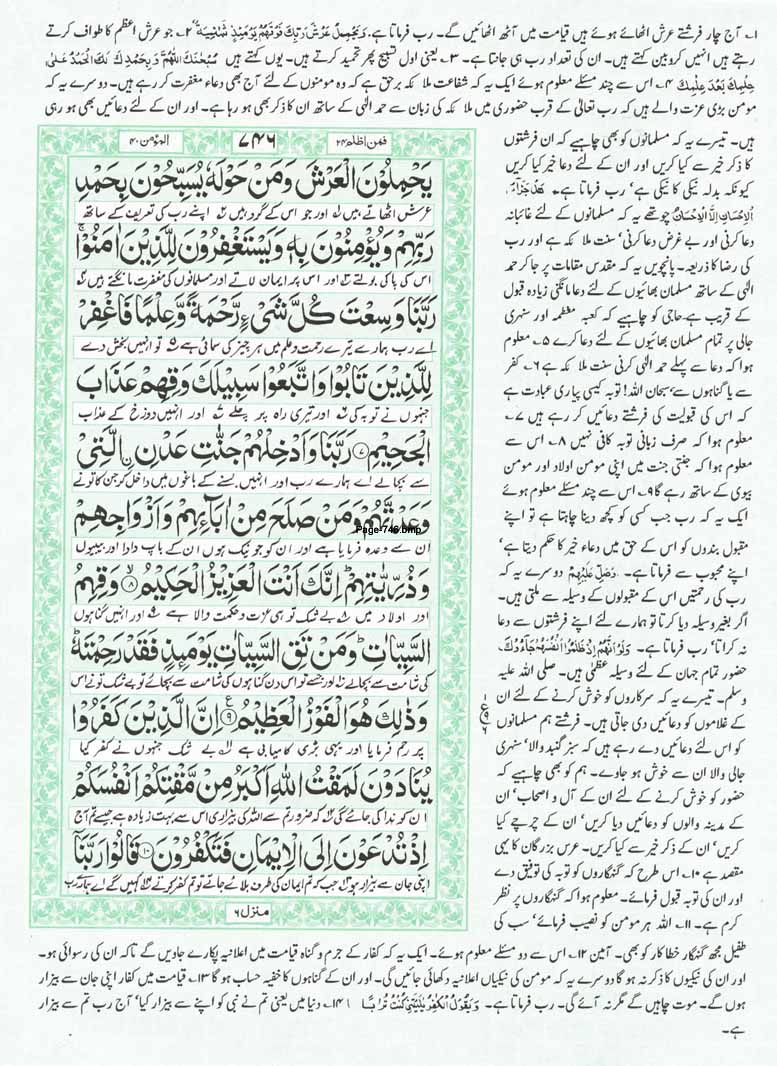 ۱۔ آج چار فرشتے عرش اٹھائے ہوئے ہیں قیامت میں آٹھ اٹھائیں گے۔ رب فرماتا ہے۔ وَیَحْمِلُ عَرْشَ رَبِّکَ فَوْقَهُمْ یَوْمَئِذٍ ثَمٰنِیَةٌ ۲۔ جو عرش اعظم کا طواف کرتے
رہتے ہیں انہیں کروبین کہتے ہیں۔ ان کی تعداد رب ہی جانتا ہے۔ ۳۔ یعنی اول تسبیح پھر تحمید کرتے ہیں۔ یوں کہتے ہیں سُبْحٰنَکَ اللّٰهُمَّ وَبِحَمْدِکَ لَکَ الْحَمْدُ عَلٰی
حِلْمِکَ بَعْدَ عِلْمِکَ ۴۔ اس سے چند مسئلے معلوم ہوئے ایک یہ کہ شفاعت ملا ئکہ برحق ہے کہ وہ مومنوں کے لئے آج بھی دعاء مغفرت کر رہے ہیں۔ دوسرے یہ کہ
مومن بڑی عزت والے ہیں کہ رب تعالیٰ کے قرب حضوری میں ملا ئکہ کی زبان سے حمد الٰہی کے ساتھ ان کا ذکر بھی ہو رہا ہے۔ اور ان کے لئے دعائیں بھی ہو رہی
ہیں۔ تیسرے یہ کہ مسلمانوں کو بھی چاہیے کہ ان فرشتوں
کا ذکر خیر سے کیا کریں اور ان کے لئے دعا خیر کیا کریں
کیونکہ بدلہ نیکی کا نیکی ہے‘ رب فرماتا ہے۔ هَلْ جَزَآءُ
الْاِحْسَانِ اِلَّا الْاِحْسَانُ چوتھے یہ کہ مسلمانوں کے لئے غائبانہ
دعا کرنی اور بے غرض دعا کرنی‘ سنت ملا ئکہ ہے اور رب
کی رضا کا ذریعہ۔ پانچویں یہ کہ مقدس مقامات پر جا کر حمد
الٰہی کے ساتھ مسلمان بھائیوں کے لئے دعا مانگنی زیادہ قبول
کے قریب ہے۔ حاجی کو چاہیے کہ کعبہ معظمہ اور سنہری
جالی پر تمام مسلمان بھائیوں کے لئے دعا کرے ۵۔ معلوم
ہوا کہ دعا سے پہلے حمد الٰہی کرنی سنت ملا ئکہ ہے ۶۔ کفر
سے یا گناہوں سے سبحان اللہ! توبہ کیسی پیاری عبادت ہے
کہ اس کی قبولیت کی فرشتے دعائیں کر رہے ہیں ۷۔
معلوم ہوا کہ صرف زبانی توبہ کافی نہیں ۸۔ اس سے
معلوم ہوا کہ جنتی جنت میں اپنی مومن اولاد اور مومن
بیوی کے ساتھ رہے گا ۹۔ اس سے چند مسئلے معلوم ہوئے
ایک یہ کہ رب جب کسی کو کچھ دینا چاہتا ہے تو اپنے
مقبول بندوں کو اس کے حق میں دعاء خیر کا حکم دیتا ہے‘
اپنے محبوب سے فرماتا ہے۔ وَصَلِّ عَلَیْهِمْ دوسرے یہ کہ
رب کی رحمتیں اس کے مقبولوں کے وسیلہ سے ملتی ہیں۔
اگر بغیر وسیلہ دیا کرتا تو ہمارے لئے اپنے فرشتوں سے دعا
نہ کراتا‘ رب فرماتا ہے۔ وَلَوْ اَنَّهُمْ اِذْ ظَلَمُوْا اَنْفُسَهُمْ جَآءُوْکَ
حضور تمام جہان کے لئے وسیلہ عظمیٰ ہیں۔ صلی اللہ علیہ
وسلم۔ تیسرے یہ کہ سرکاروں کو خوش کرنے کے لئے ان
کے غلاموں کو دعائیں دی جاتی ہیں۔ فرشتے ہم مسلمانوں
کو اس لئے دعائیں دے رہے ہیں کہ سبز گنبد والا‘ سنہری
جالی والا ان سے خوش ہو جاوے۔ ہم کو بھی چاہیے کہ
حضور کو خوش کرنے کے لئے ان کے آل و اصحاب‘ ان
کے مدینہ والوں کو دعائیں دیا کریں‘ ان کے چرچے کیا
کریں‘ ان کے ذکر خیر سے کیا کریں۔ عرس بزرگان کا یہی
مقصد ہے ۱۰۔ اس طرح کہ گنہگاروں کو توبہ کی توفیق دے
اور ان کی توبہ قبول فرمائے۔ معلوم ہوا کہ گنہگاروں پر نظر
کرم ہے۔ ۱۱۔ اللہ ہر مومن کو نصیب فرمائے‘ سب کی
فمن اظلم ۲۴
۷۴۶
المؤمن ۴۰
یَحْمِلُوْنَ الْعَرْشَ وَمَنْ حَوْلَهٗ یُسَبِّحُوْنَ بِحَمْدِ
عرش اٹھاتے ہیں اور جو اس کے گرد ہیں اپنے رب کی تعریف کے ساتھ
رَبِّهِمْ وَیُؤْمِنُوْنَ بِهٖ وَیَسْتَغْفِرُوْنَ لِلَّذِیْنَ اٰمَنُوْا ۚ
اس کی پاکی بولتے اور اس پر ایمان لاتے اور مسلمانوں کی مغفرت مانگتے ہیں
رَبَّنَا وَسِعْتَ کُلَّ شَیْءٍ رَّحْمَةً وَّعِلْمًا فَاغْفِرْ
اے رب ہمارے تیرے رحمت و علم میں ہر چیز کی سمائی ہے تو انہیں بخش دے
لِلَّذِیْنَ تَابُوْا وَاتَّبَعُوْا سَبِیْلَکَ وَقِهِمْ عَذَابَ
جنہوں نے توبہ کی اور تیری راہ پر چلے اور انہیں دوزخ کے عذاب
الْجَحِیْمِ ۷ رَبَّنَا وَاَدْخِلْهُمْ جَنّٰتِ عَدْنِ ِۨ الَّتِیْ
سے بچالے اے ہمارے رب اور انہیں بسنے کے باغوں میں داخل کر جن کا تو نے
وَعَدْتَّهُمْ وَمَنْ صَلَحَ مِنْ اٰبَآئِهِمْ وَاَزْوَاجِهِمْ
Page-746.bmp
ان سے وعدہ فرمایا ہے اور ان کو جو نیک ہوں ان کے باپ دادا اور بیبیوں
وَذُرِّیّٰتِهِمْ ؕ اِنَّکَ اَنْتَ الْعَزِیْزُ الْحَکِیْمُ ۸ وَقِهِمُ
اور اولاد میں بے شک تو ہی عزت و حکمت والا ہے اور انہیں گناہوں
السَّیِّاٰتِ ؕ وَمَنْ تَقِ السَّیِّاٰتِ یَوْمَئِذٍ فَقَدْ رَحِمْتَهٗ ؕ
کی شامت سے بچالے اور جسے تو اس دن گناہوں کی شامت سے بچائے تو بے شک تو نے اس
وَذٰلِکَ هُوَ الْفَوْزُ الْعَظِیْمُ ۹ اِنَّ الَّذِیْنَ کَفَرُوْا
پر رحم فرمایا اور یہی بڑی کامیابی ہے بے شک جنہوں نے کفر کیا
یُنَادَوْنَ لَمَقْتُ اللّٰهِ اَکْبَرُ مِنْ مَّقْتِکُمْ اَنْفُسَکُمْ
ان کو ندا کی جائے گی کہ ضرور تم سے اللہ کی بیزاری اس سے بہت زیادہ ہے جیسے تم آج
اِذْ تُدْعَوْنَ اِلَی الْاِیْمَانِ فَتَکْفُرُوْنَ ۱۰ قَالُوْا رَبَّنَا
اپنی جان سے بیزار ہو جب کہ تم ایمان کی طرف بلائے جاتے تو تم کفر کرتے کہیں گے اے ہمارے رب
منزل ۶
طفیل مجھ گنہگار خطا کار کو بھی۔ آمین ۱۲۔ اس سے دو مسئلے معلوم ہوئے۔ ایک یہ کہ کفار کے جرم و گناہ قیامت میں اعلانیہ پکارے جاویں گے تاکہ ان کی رسوائی ہو۔
اور ان کی نیکیوں کا ذکر نہ ہو گا دوسرے یہ کہ مومن کی نیکیاں اعلانیہ دکھائی جائیں گی۔ اور ان کے گناہوں کا خفیہ حساب ہو گا ۱۳۔ قیامت میں کفار اپنی جان سے بیزار
ہوں گے۔ موت چاہیں گے مگر نہ آئے گی۔ رب فرماتا ہے۔ وَیَقُوْلُ الْکٰفِرُ یٰلَیْتَنِیْ کُنْتُ تُرَابًا ۱۴۔ دنیا میں یعنی تم نے نبی کو اپنے سے بیزار کیا‘ آج رب تم سے بیزار
ہے۔